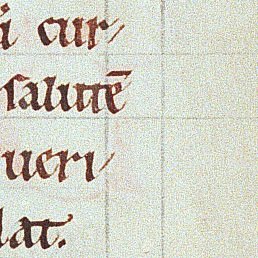 i cur
salutē
ueri
lat.